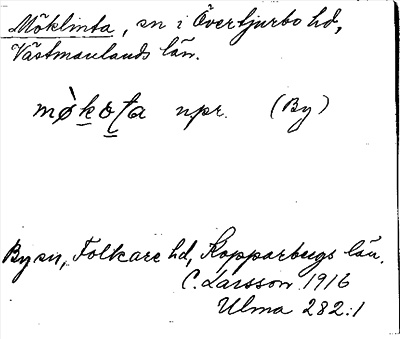 Möklinta, sn i Övertjurbo hd,
Västmanlands län.
npr. (By)
By sn, Folkare hd, Kopparbergs län.
C. Larsson 1916
Ulma 282:1